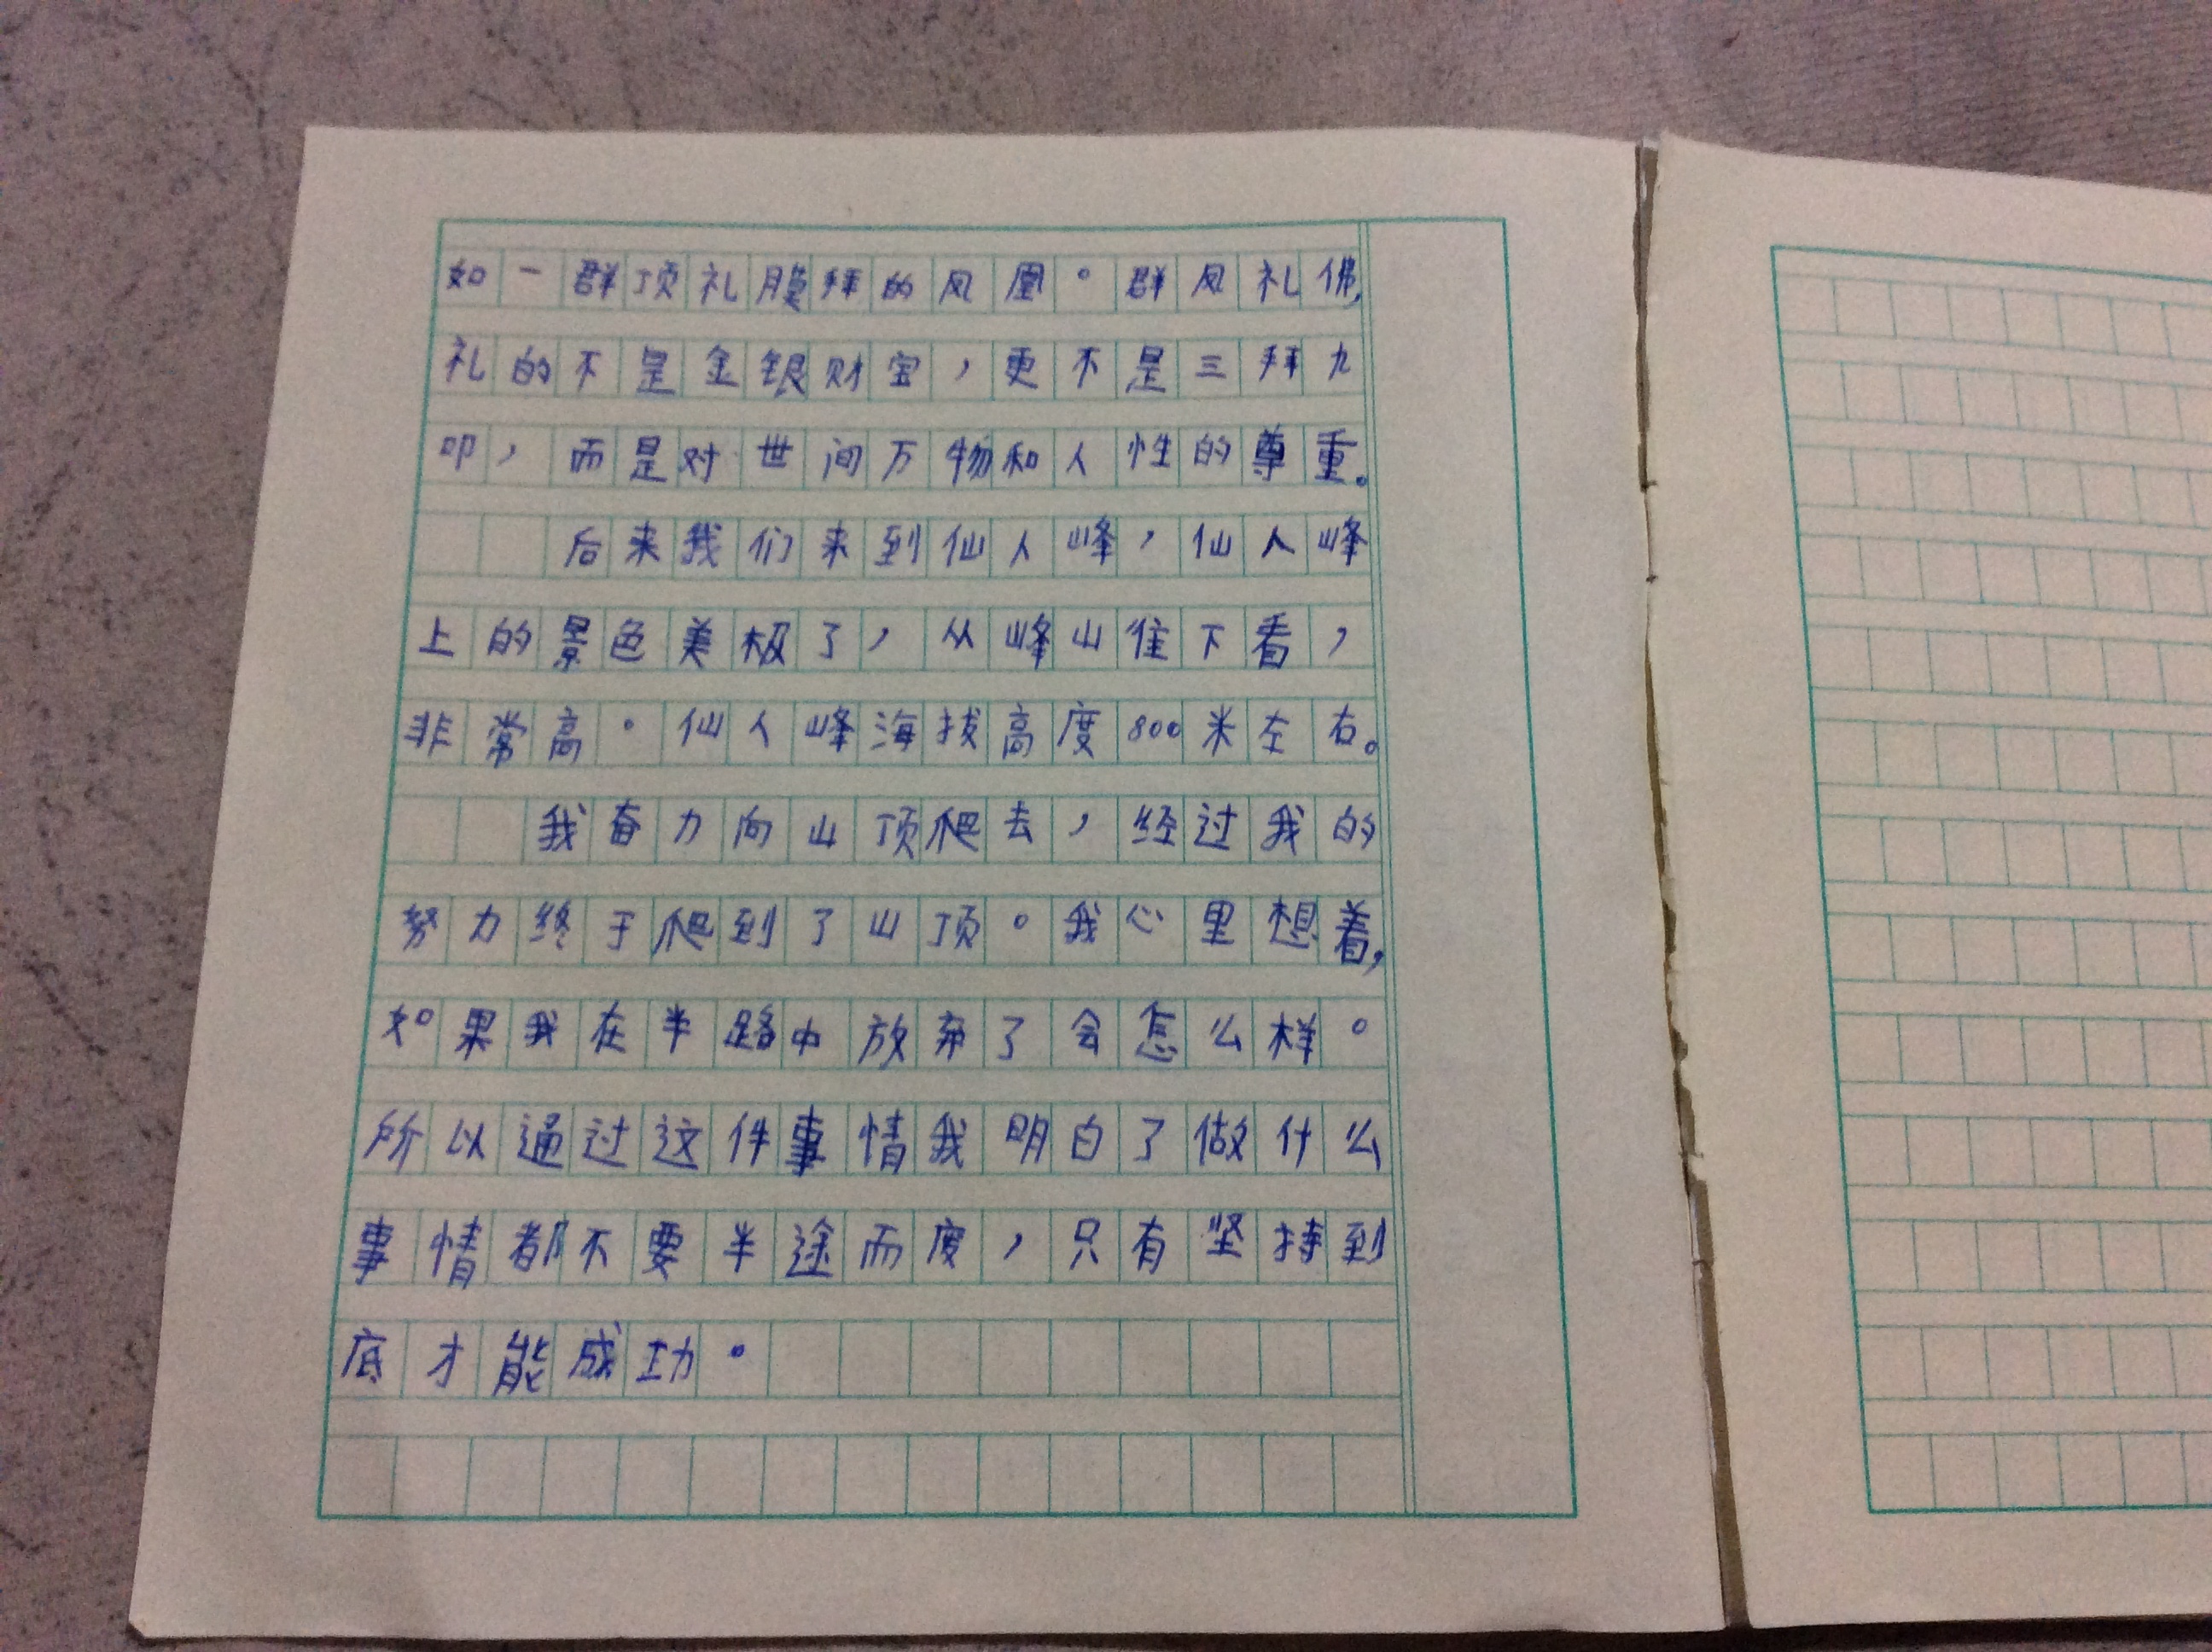 如一群顶礼膜拜的凤凰。群凤礼佛,
礼的不是金银财宝，更不是三拜九
叩，而是对世间万物和人性的尊重。
后来我们来到仙人峰，仙人峰
上的景色美极了，从峰山往下看，
非常高。仙人峰海拔高度800米左右。
我奋力向山顶爬去，经过我的
努力终于爬到了山顶。我心里想着,
如果我在半路中放弃了会怎么样。
所以通过这件事情我明白了做什么
事情都不要半途而废，只有坚持到
底才能成功。